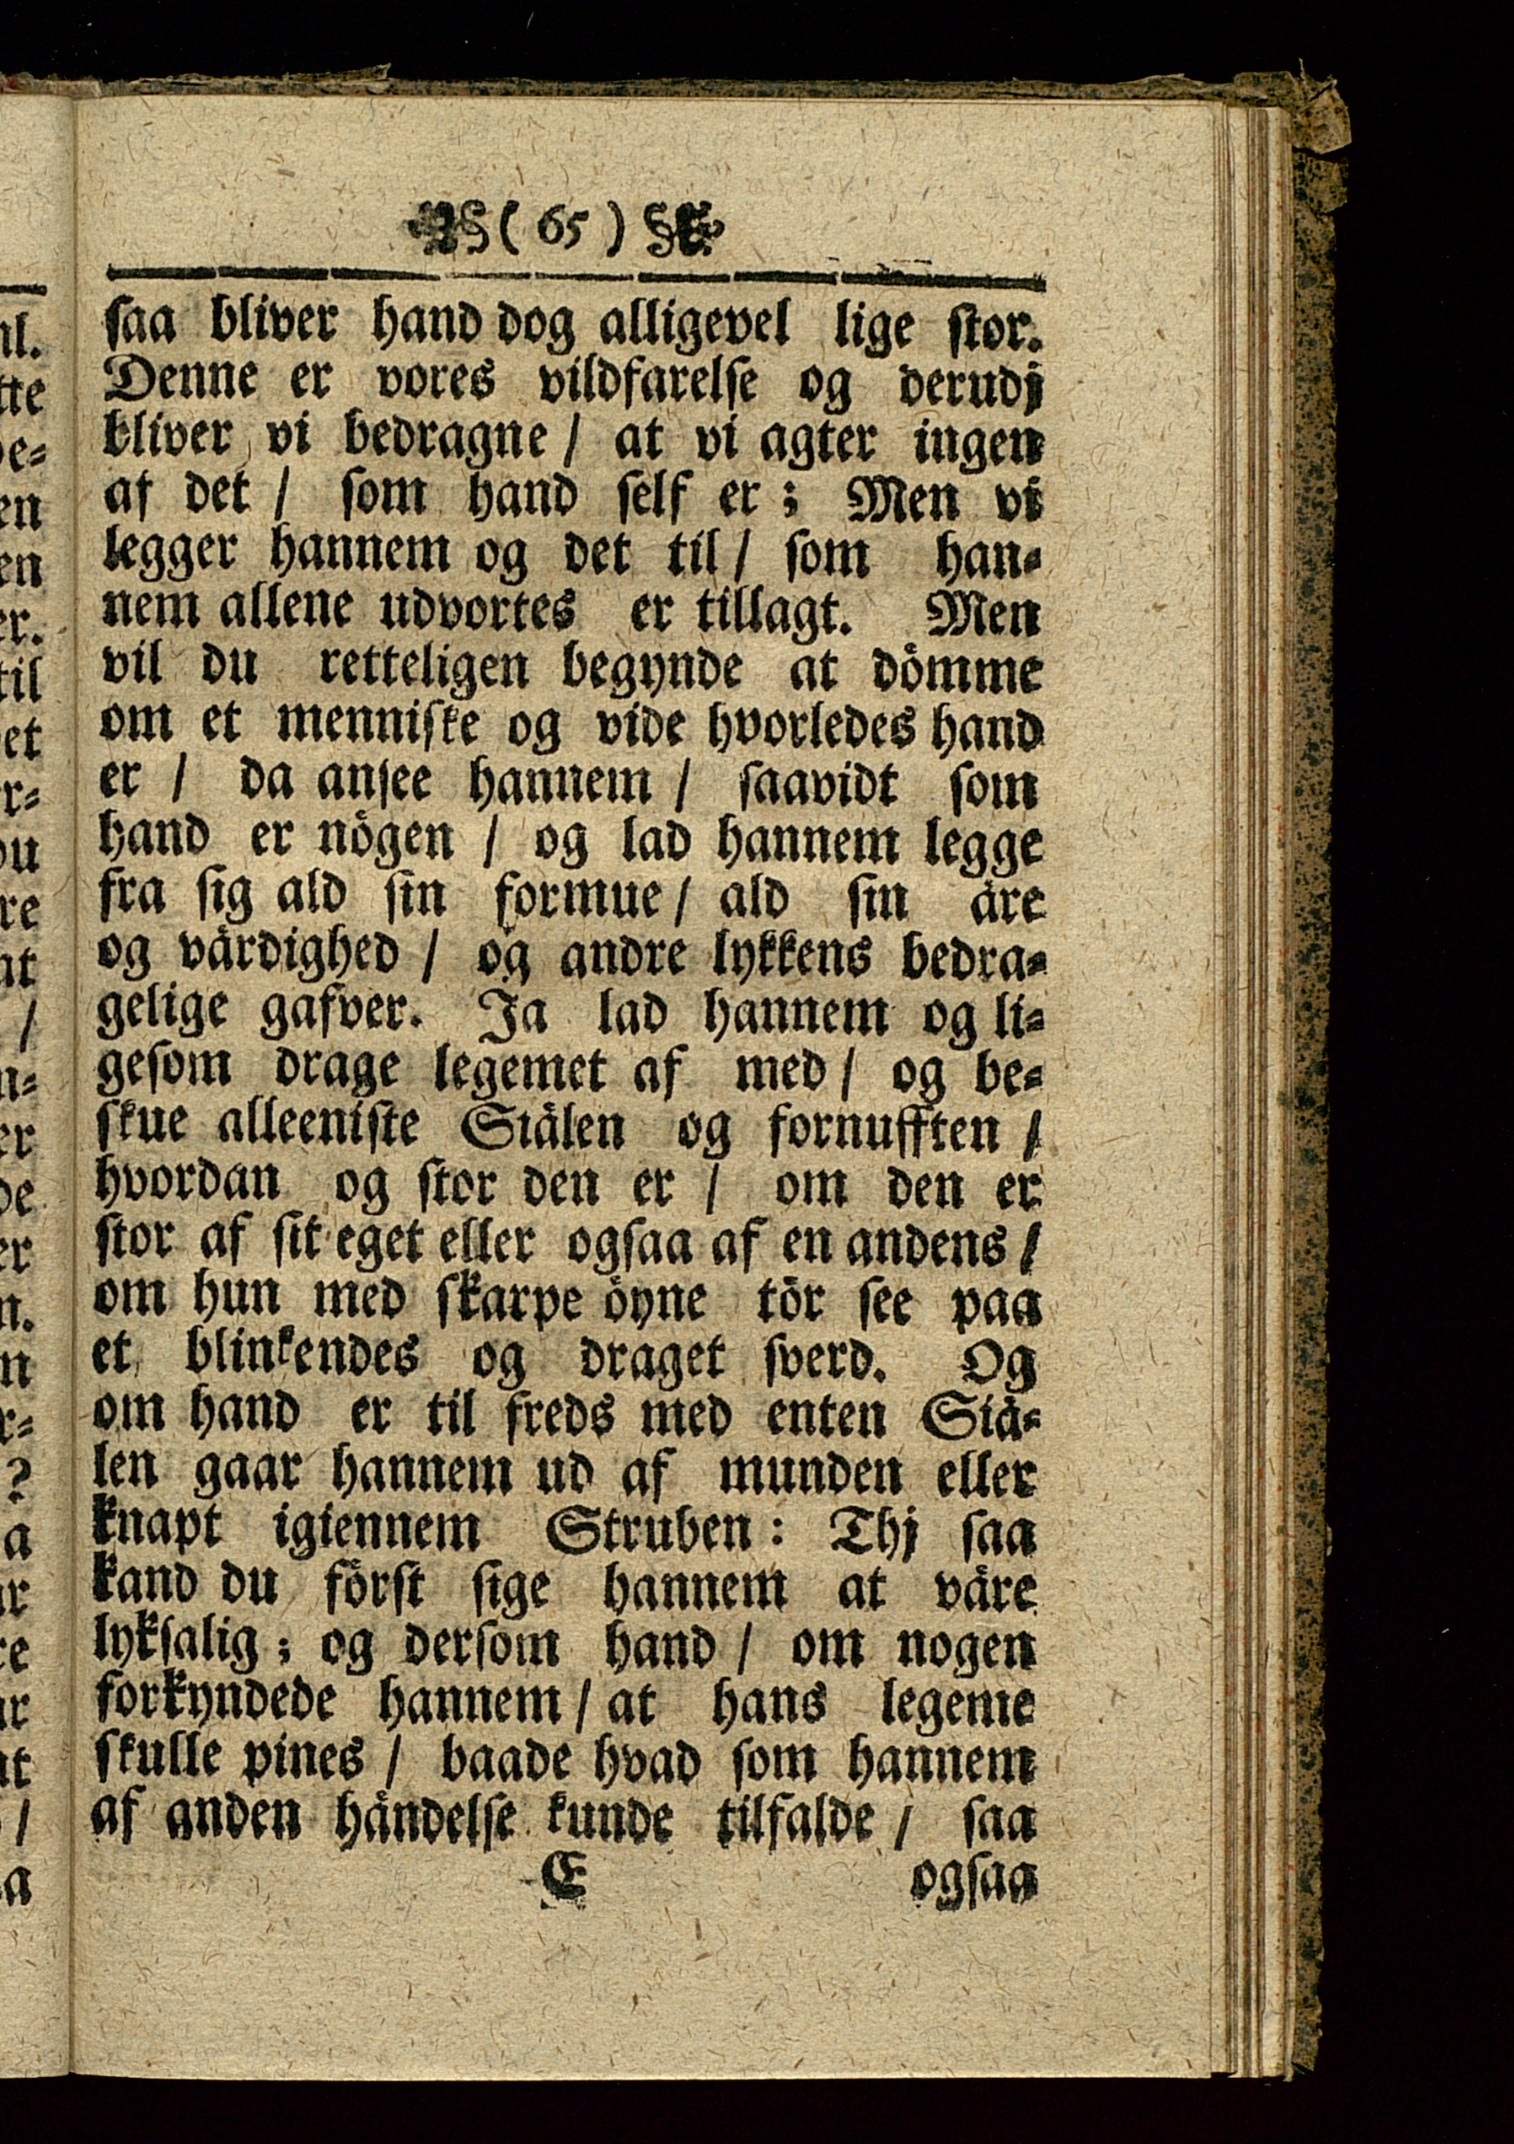 § ( 65 ) §
ſaa bliver hand dog alligevel lige ſtor.
Denne er vores vildfarelſe og derudj
bliver vi bedragne / at vi agter ingen
af det / ſom hand ſelf er ; Men vi
legger hannem og det til / ſom han⸗
nem allene udvortes er tillagt. Men
vil du retteligen begynde at dömme
om et menniſke og vide hvorledes hand
er / da anſee hannem / ſaavidt ſom
hand er nögen / og lad hannem legge
fra ſig ald ſin formue / ald ſin äre
og värdighed / og andre lykkens bedra⸗
gelige gafver. Ja lad hannem og li⸗
geſom drage legemet af med / og be⸗
ſkue alleeniſte Siälen og fornufften /
hvordan og ſtor den er / om den er
ſtor af ſit eget eller ogſaa af en andens /
om hun med ſkarpe öyne tör ſee paa
et blinkendes og draget ſverd. Og
om hand er til freds med enten Siä⸗
len gaar hannem ud af munden eller
knapt igiennem Struben : Thj ſaa
kand du förſt ſige hannem at väre
lykſalig ; og derſom hand / om nogen
forkyndede hannem / at hans legeme
ſkulle pines / baade hvad ſom hannem
af anden händelſe kunde tilfalde / ſaa
E ogſaa